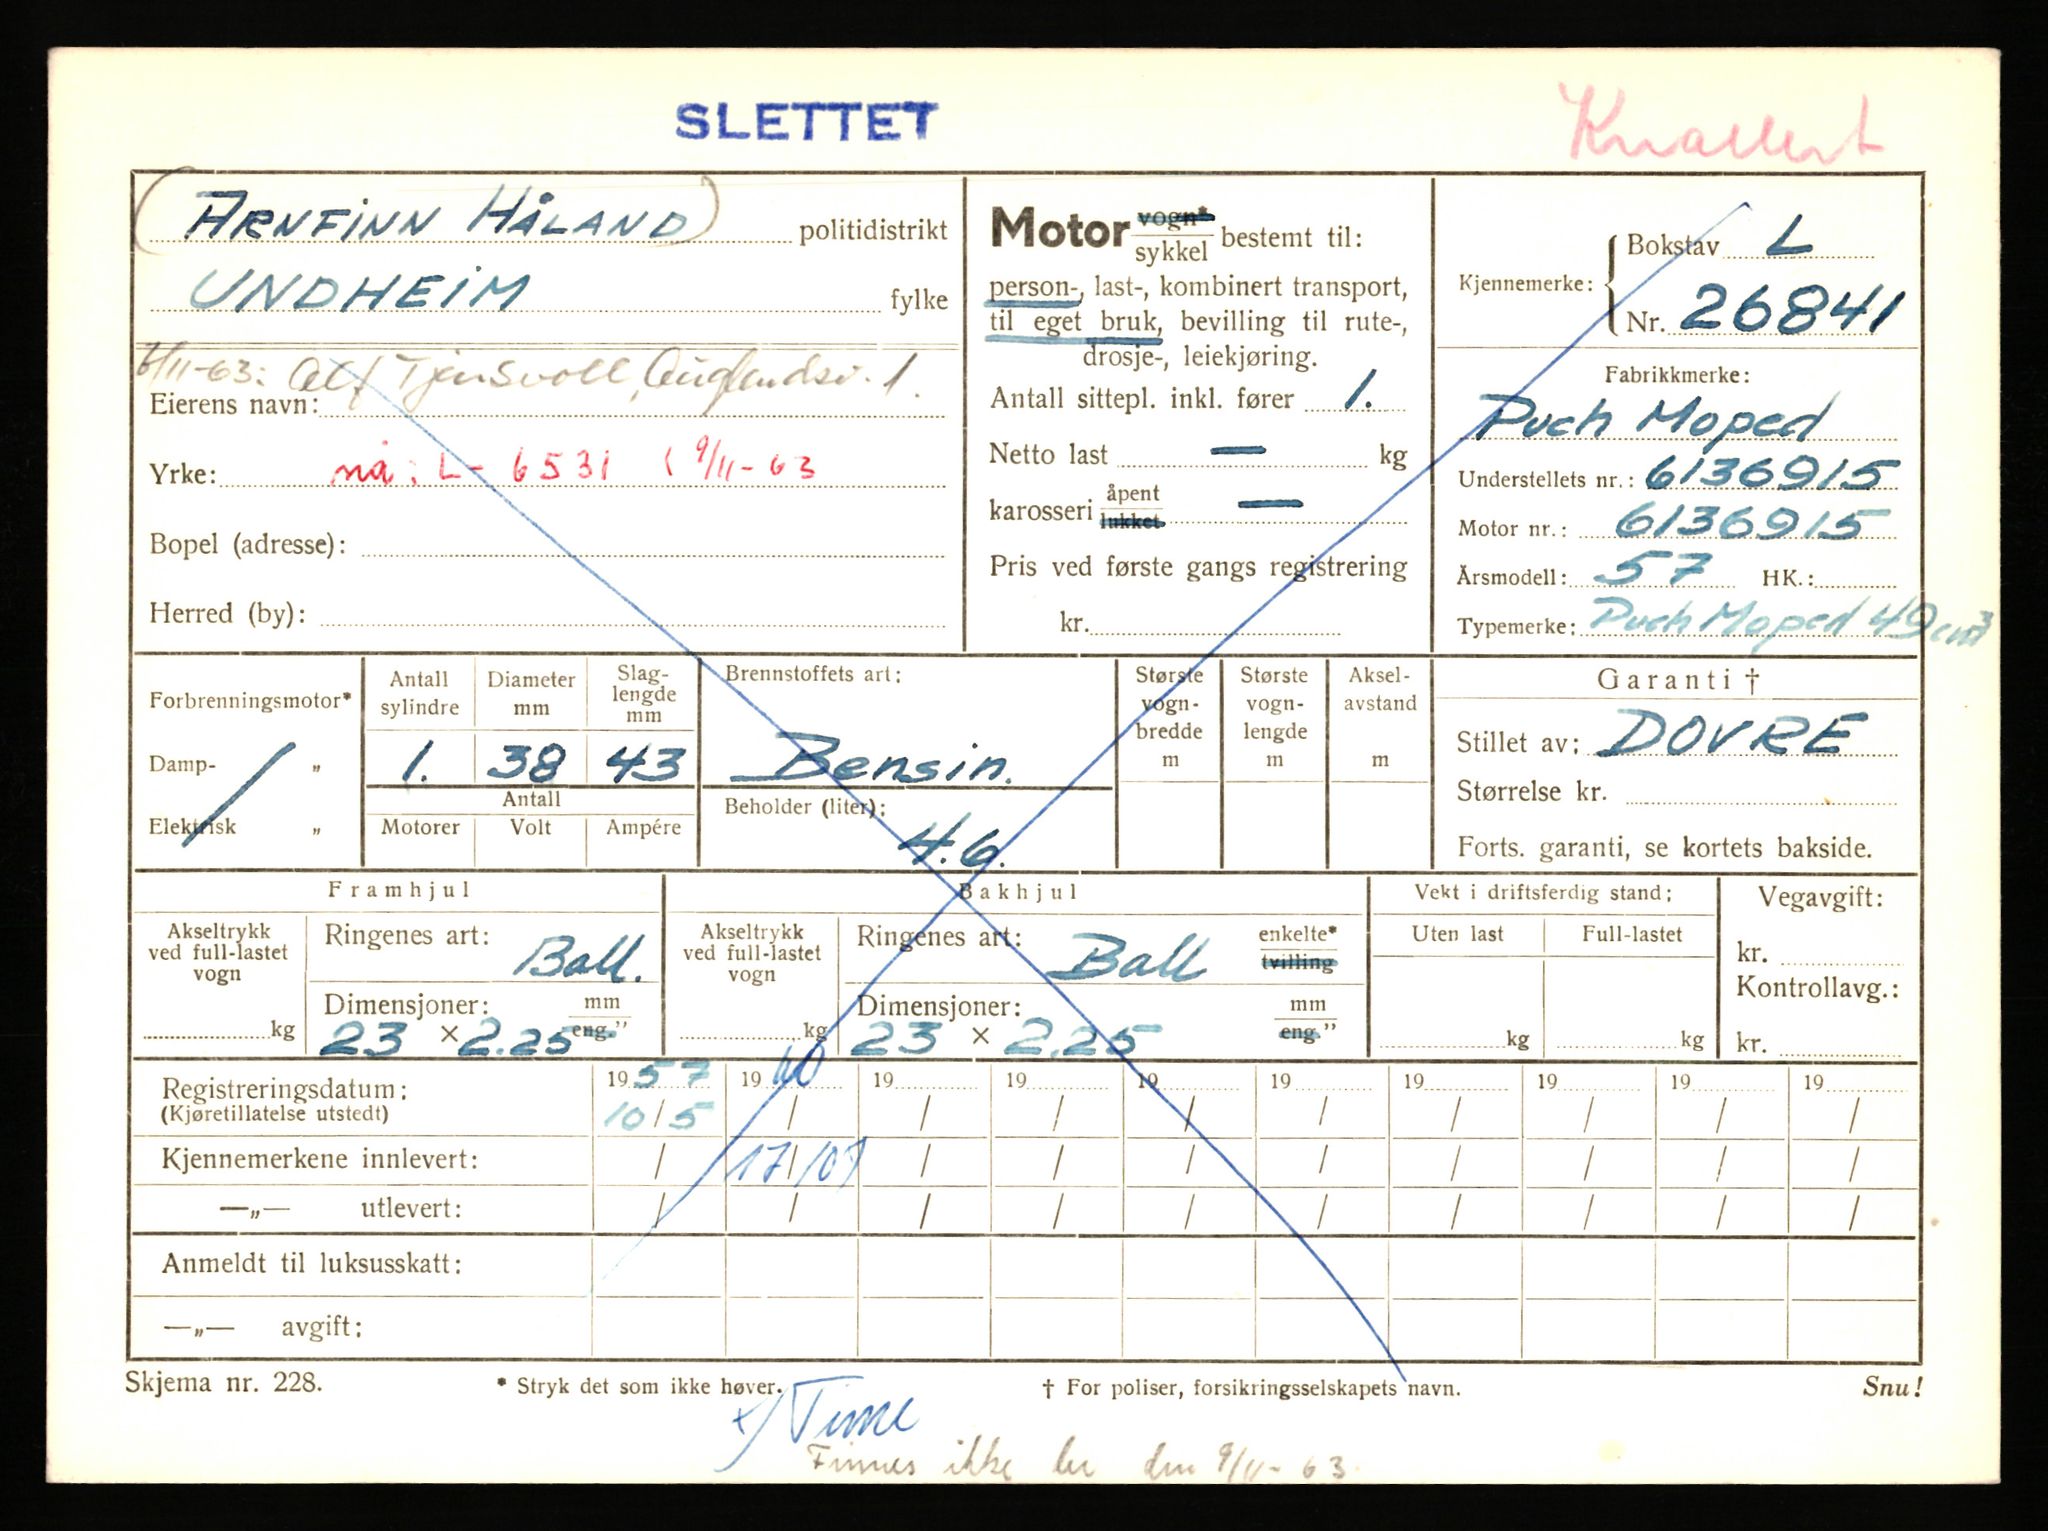 SLETTET
Knallert
(ARNFINN HÅLAND) politidistrikt
UNDHEIM fylke
9/11-63: Alf Tjensvoll, Auglendsv. 1.
Eierens navn:
Yrke: nå: L- 6531 ( 9/11-63
Bopel (adresse):
Herred (by):
Motor vogn* sykkel bestemt til:
person-, last-, kombinert transport,
til eget bruk, bevilling til rute-,
drosje-, leiekjøring.
Antall sittepl. inkl. fører 1.
Netto last — kg
karosseri åpent lukket —
Pris ved første gangs registrering
kr.
Kjennemerke: Bokstav L
Nr. 26841
Fabrikkmerke:
Puch Moped
Understellets nr.: 6136915
Motor nr.: 6136915
Årsmodell: 57 HK.:
Typemerke: Puch Moped 49 cm³
Forbrenningsmotor*
Damp- „
Elektrisk „
Antall sylindre
Diameter mm
Slag-lengde mm
1. 38 43
Antall
Motorer Volt Ampére
Brennstoffets art:
Bensin.
Beholder (liter):
4.6.
Største vogn-bredde m
Største vogn-lengde m
Aksel-avstand m
Garanti †
Stillet av: DOVRE
Størrelse kr.
Forts. garanti, se kortets bakside.
Framhjul
Akseltrykk ved full-lastet vogn
kg
Ringenes art: Ball.
Dimensjoner: mm eng."
23 × 2.25
Bakhjul
Akseltrykk ved full-lastet vogn
kg
Ringenes art: Ball enkelte* tvilling
Dimensjoner: mm eng."
23 × 2.25
Vekt i driftsferdig stand:
Uten last Full-lastet
kg kg
Vegavgift:
kr.
Kontrollavg.:
kr.
Registreringsdatum: 1957 1960 19 19 19 19 19 19 19 19
(Kjøretillatelse utstedt) 10/5 / / / / / / / / /
Kjennemerkene innlevert: / 17/07 / / / / / / / /
—„— utlevert: / / / / / / / / / /
Anmeldt til luksusskatt:
—„— avgift:
Skjema nr. 228. * Stryk det som ikke høver. † For poliser, forsikringsselskapets navn. Snu!
x/ Time
Finnes ikke her den 9/11-63.